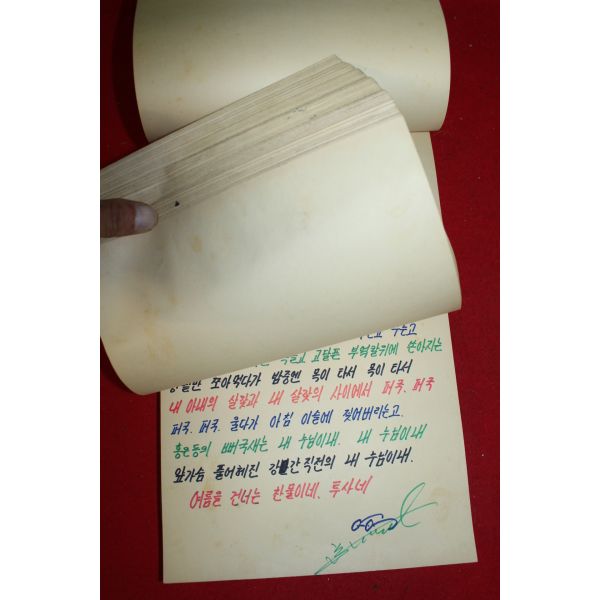 고달픈 부엌칼위에 쏟아지는
쪼아먹다가 밤중엔 목이 타서 목이 타서
내 아내의 살갗과 내 살갗의 사이에서 퍼국. 퍼국
퍼국. 퍼국. 울다가 아침 이슬에 젖어버리는고.
홍은동의 뻐국새는 내 누님이네. 내 누님이네
앞가슴 풀어헤친 강간직전의 내 누님이네.
여름을 건너는 찬물이네. 투사네